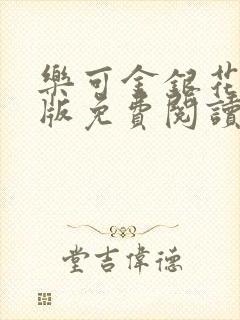 樂可金銀花
版免費閱讀
堂吉偉德